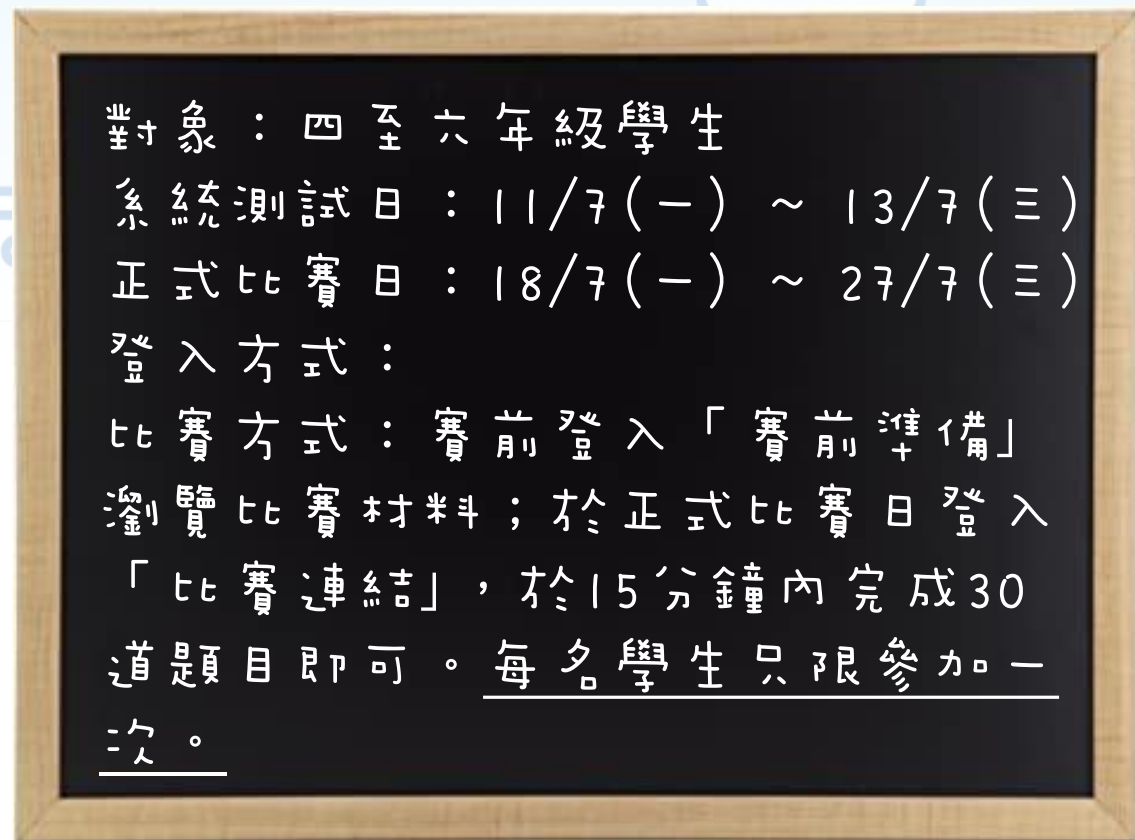 對象：四至六年級學生
系統測試日：11/7(一) ~ 13/7(三)
正式比賽日：18/7(一) ~ 27/7(三)
登入方式：
比賽方式：賽前登入「賽前準備」
瀏覽比賽材料；於正式比賽日登入
「比賽連結」，於15分鐘內完成30
道題目即可。每名學生只限參加一
次。